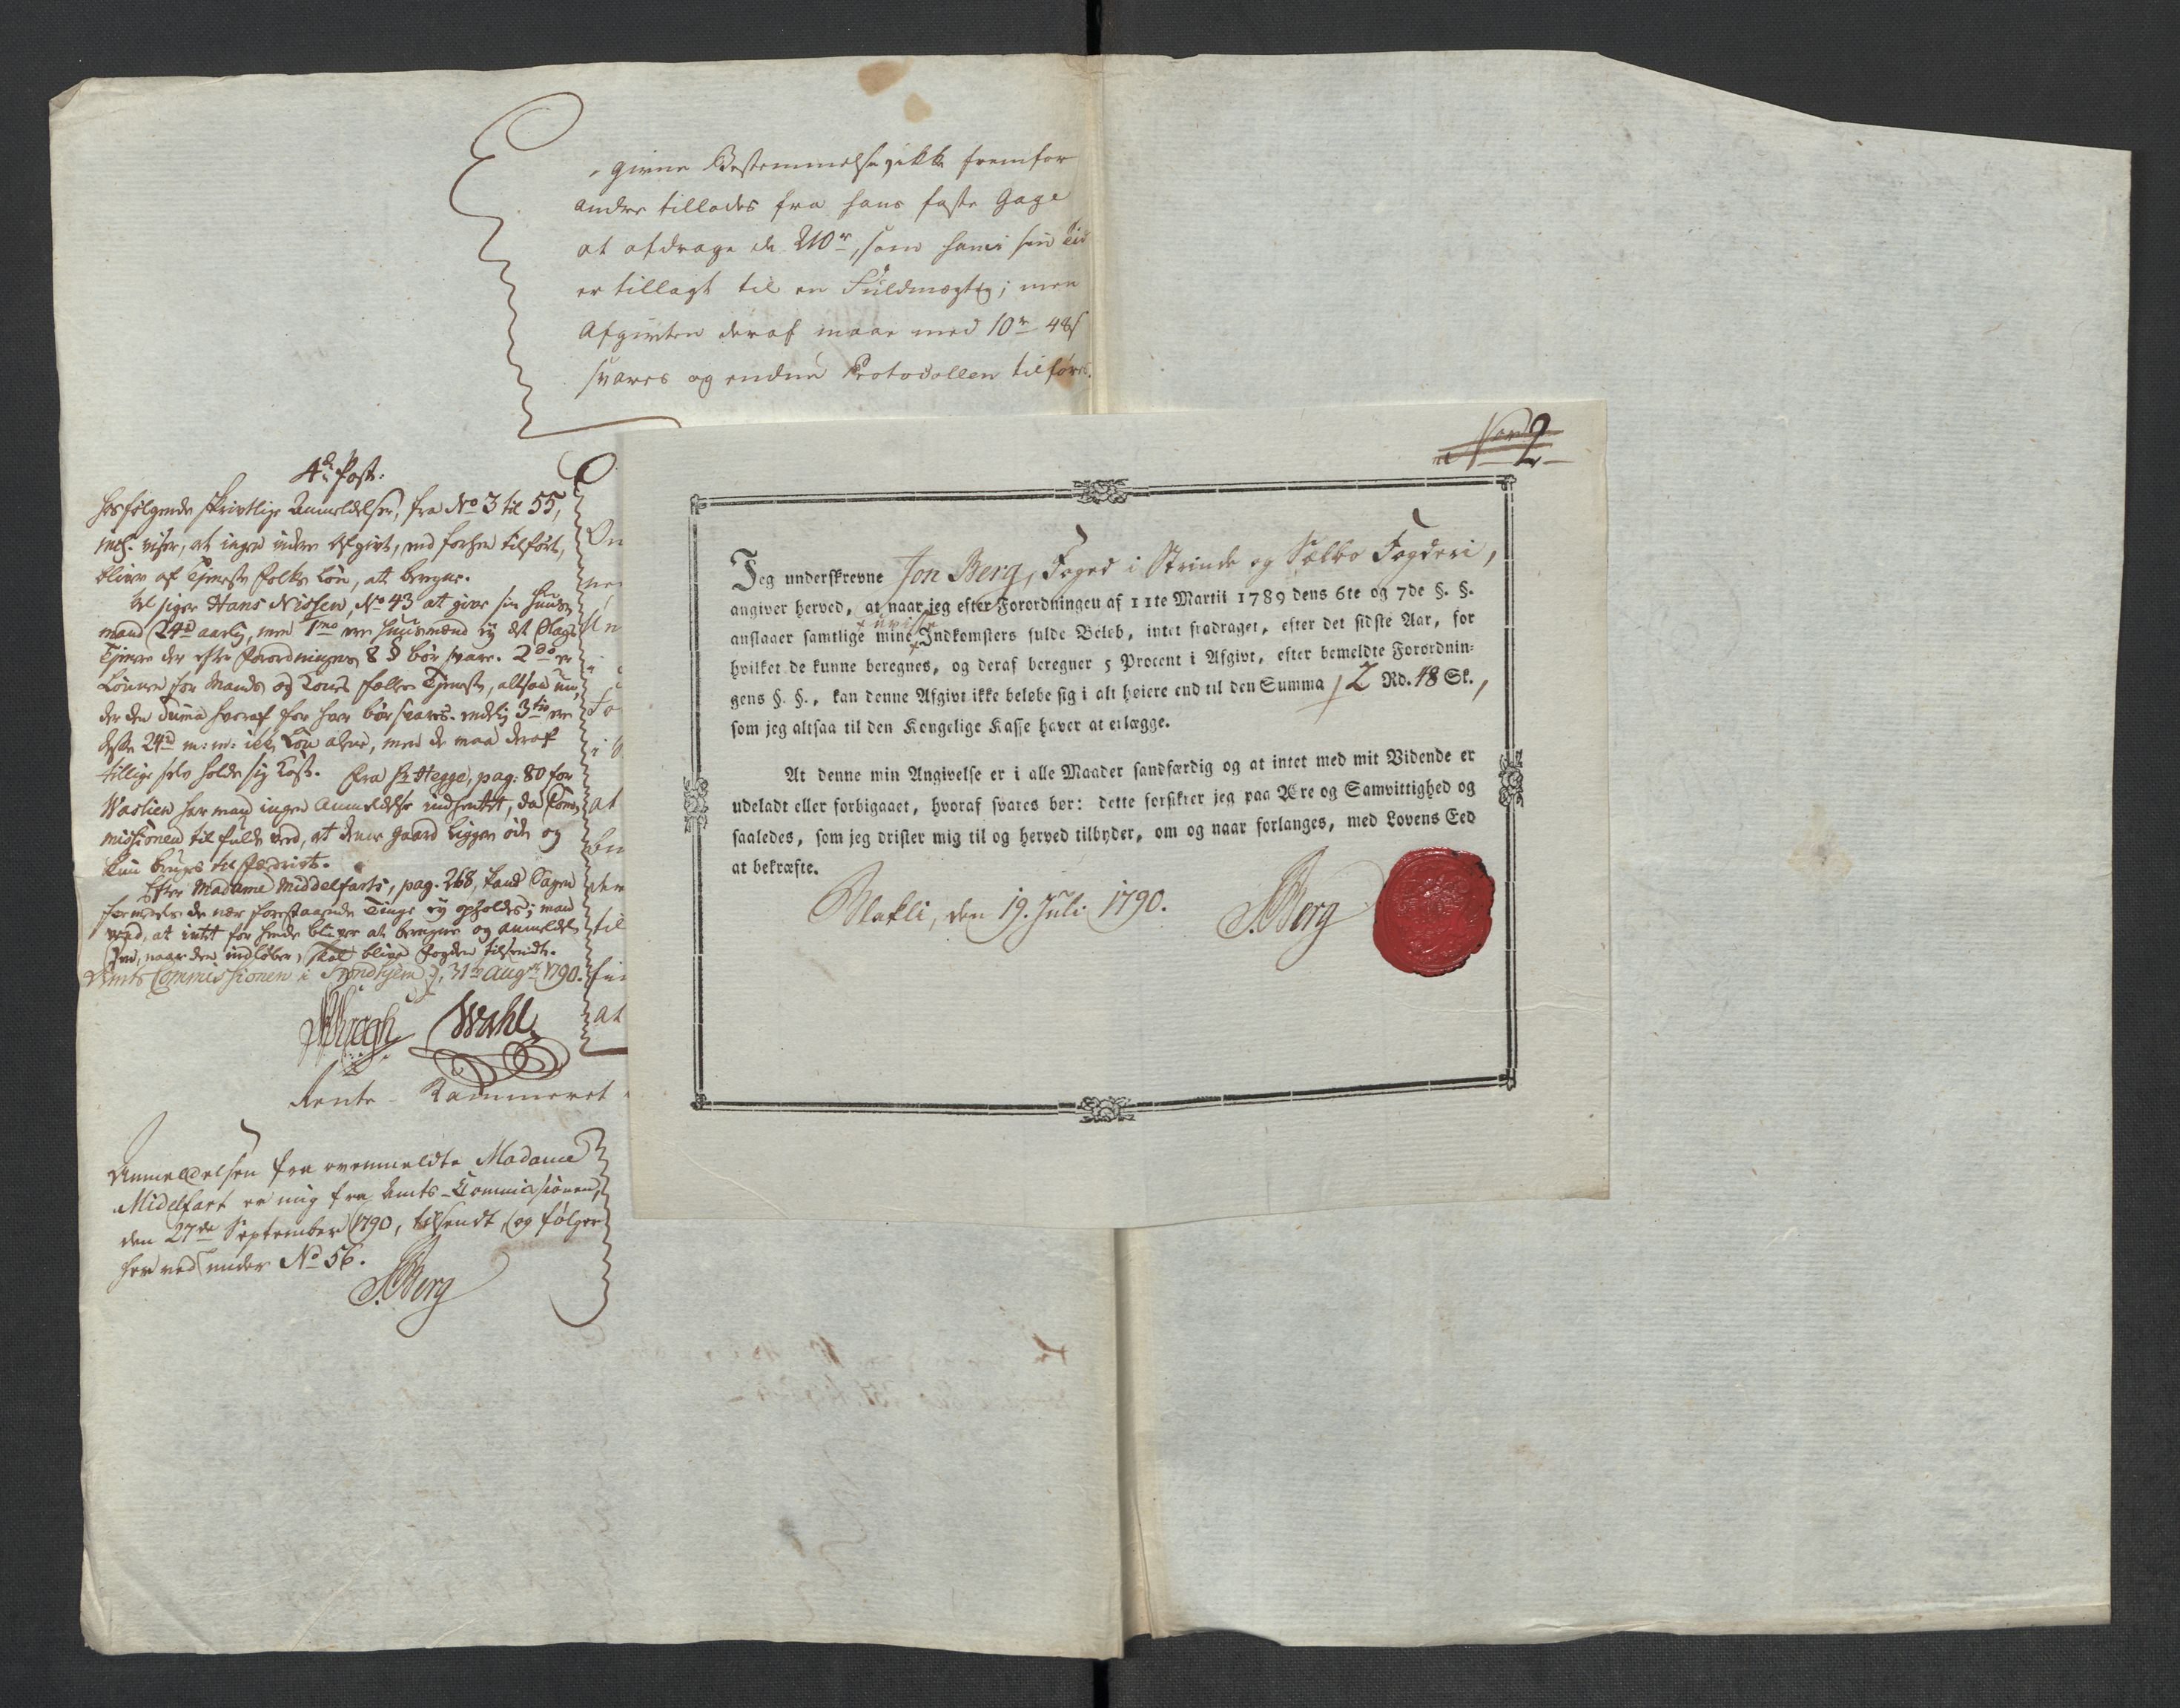 givne Bestemmelse ikke fremfor
andre tillades fra hans faste Gage
at afdrage de 210 rd, som ham i sin Tid
er tillagt til en Fuldmægtig; men
Afgivten deraf maae med 10 rd 48 s
svares og endnu Protocollen tilføres.
4de Post.
Hosfølgende skrivtlige Anmeldelser, fra No 3 til 55,
incl. viser, at ingen videre Afgivt, end forhen tilført,
bliver af Tjeneste Folks Løn, at beregne.
Vel siger Hans Nissen, No 43 at give sin Huus-
mand 24 rd aarlig, men 1mo ere Huusmænd ej det Slags
Tjenere der efter Forordningens 8 § bør svare. 2do er
Lønnen for Mands og Kones fælles Tjeneste, altsaa un-
der den Summa hvoraf for hver bør svares. endelig 3tio ere
disse 24 rd ikke Løn alene, men de maa deraf
tillige selv holde sig Kost. Fra Hr Hegge, pag: 80 for
Vaslien har man ingen Anmeldelse indhentet, da Com-
missionen til fulde veed, at denne Gaard ligger øde og
kun bruges til Fædrivt.
Efter Madame Middelfarts, pag. 268, kand Sagen
formedelst de nær forestaaende Tinge ej opholdes; man
veed, at intet for hende bliver at beregne og Anmeldel-
sen, naar den indløber, skal blive Fogden tilsendt.
Amts Commissionen i Trondhjem d. 31te Augst 1790.
Wahl
Rente-Kammeret
Anmeldelsen fra ovenmeldte Madame
Midelfart er mig fra Amts-Commissionen,
den 27de September 1790, tilsendt, og følger
herved under No 56.
J. Berg
No 2
Jeg underskrevne Jon Berg, Foged i Strinde og Sælbo Fogderi,
angiver herved, at naar jeg efter Forordningen af 11te Martii 1789 dens 6te og 7de §. §.
uvisse
anslaaer samtlige mine Indkomsters fulde Beløb, intet fradraget, efter det sidste Aar, for
hvilket de kunne beregnes, og deraf beregner 5 Procent i Afgivt, efter bemeldte Forordnin-
gens §. §., kan denne Afgivt ikke beløbe sig i alt høiere end til den Summa 12 Rd. 48 Sk.,
som jeg altsaa til den Kongelige Kasse haver at erlægge.
At denne min Angivelse er i alle Maader sandfærdig og at intet med mit Vidende er
udeladt eller forbigaaet, hvoraf svares bør: dette forsikrer jeg paa Ære og Samvittighed og
saaledes, som jeg drister mig til og herved tilbyder, om og naar forlanges, med Lovens Eed
at bekræfte.
Blakli, den 19. Juli 1790. J. Berg